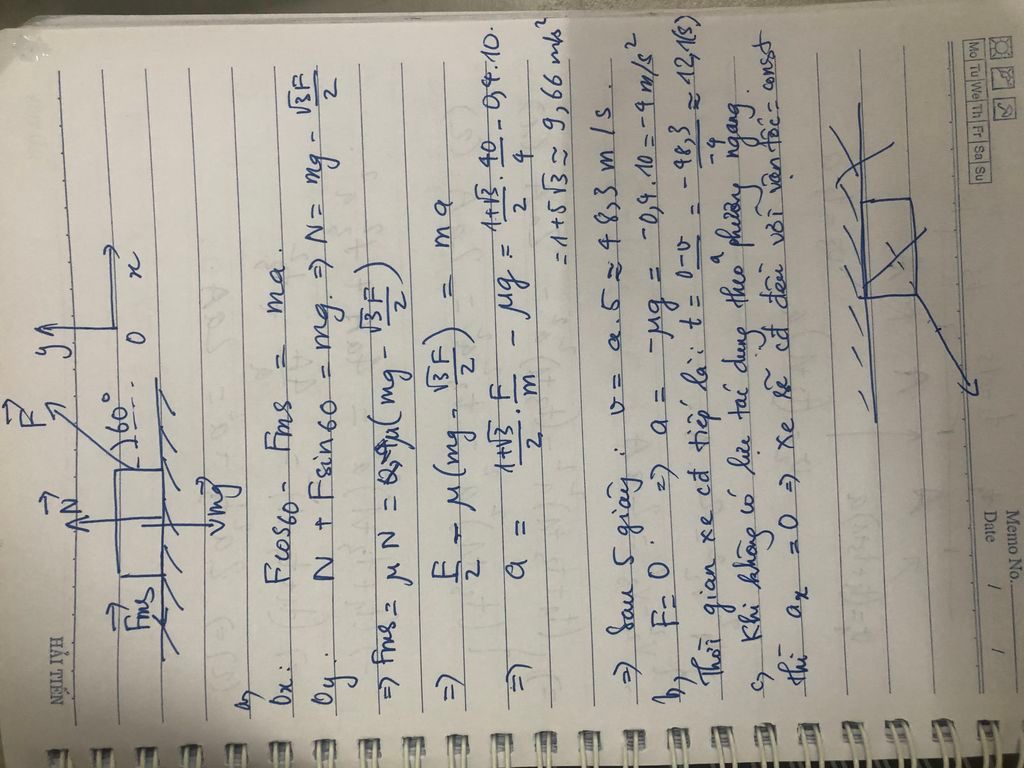 HẢI TIẾN
Memo No.
Date / /
Mo Tu We Th Fr Sa Su
N
F
y
Fms
60°
0 x
mg
a,
Ox: Fcos60 - Fms = ma
Oy: N + Fsin60 = mg. => N = mg - √3F/2
=> Fms = μN = μ(mg - √3F/2)
=> F/2 - μ(mg - √3F/2) = ma
=> a = 1+√3/2 . F/m - μg = 1+√3/2 . 40/4 - 0,4.10.
= 1+5√3 ≈ 9,66 m/s²
=> Sau 5 giây: v = a.5 ≈ 48,3 m/s.
b, F = 0 => a = -μg = -0,4.10 = -4 m/s²
Thời gian xe cđ tiếp là: t = 0-v/a = -48,3/-4 ≈ 12,1(s)
c, Khi không có lực tác dụng theo phương ngang.
thì ax = 0 => xe sẽ cđ đều với vận tốc = const